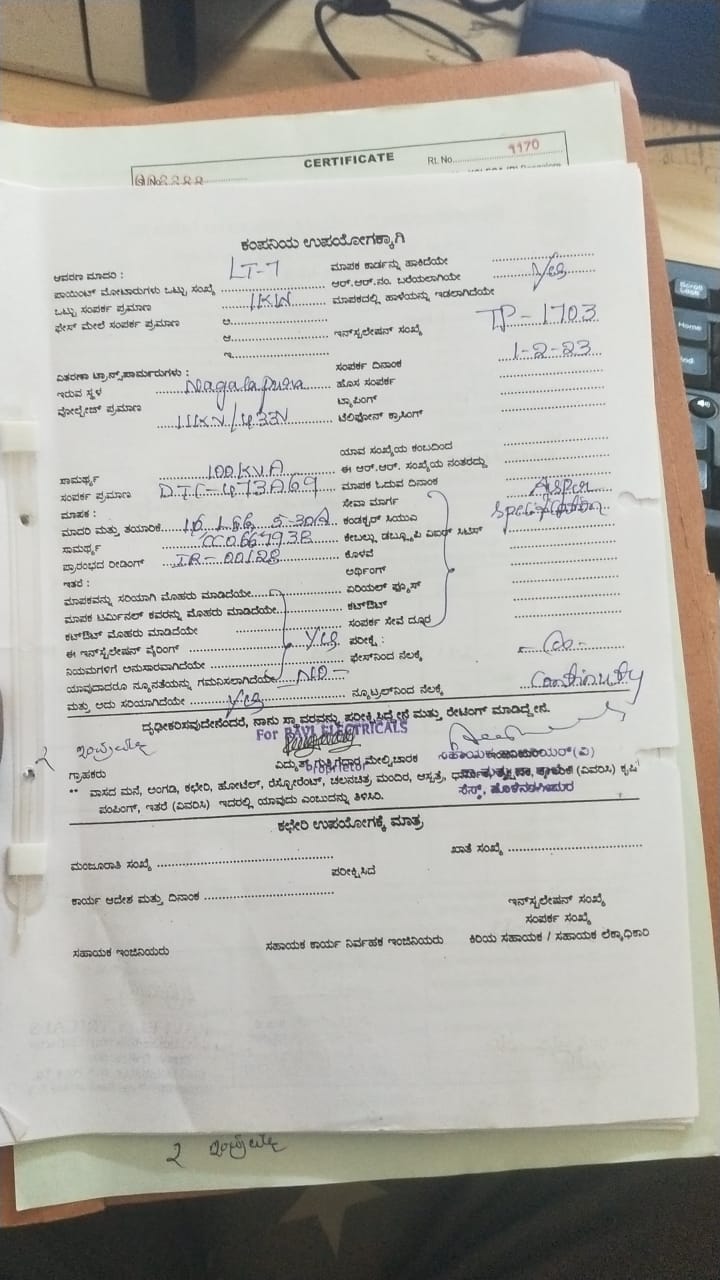 CERTIFICATE
Rt. No. 1170
ಕಂಪನಿಯ ಉಪಯೋಗಕ್ಕಾಗಿ
ಆವರಣ ಮಾದರಿ : LT-7 ಮಾಪಕ ಕಾರ್ಡನ್ನು ಹಾಕಿದೆಯೇ
ಪಾಯಿಂಟ್ ಮೋಟಾರುಗಳು ಒಟ್ಟು ಸಂಖ್ಯೆ ಆರ್.ಆರ್.ನಂ. ಬರೆಯಲಾಗಿಯೇ Yes
ಒಟ್ಟು ಸಂಪರ್ಕ ಪ್ರಮಾಣ 1KW ಮಾಪಕದಲ್ಲಿ ಹಾಳೆಯನ್ನು ಇಡಲಾಗಿದೆಯೇ
ಫೇಸ್ ಮೇಲೆ ಸಂಪರ್ಕ ಪ್ರಮಾಣ ಅ.
ಆ. ಇನ್‌ಸ್ಟಲೇಷನ್ ಸಂಖ್ಯೆ TP-1703
ಇ.
ವಿತರಣಾ ಟ್ರಾನ್ಸ್‌ಫಾರ್ಮರುಗಳು : ಸಂಪರ್ಕ ದಿನಾಂಕ 1-2-23
ಇರುವ ಸ್ಥಳ Nagalapura ಹೊಸ ಸಂಪರ್ಕ
ವೋಲ್ಟೇಜ್ ಪ್ರಮಾಣ 11KV/433V ಟ್ಯಾಪಿಂಗ್
ಟೆಲಿಫೋನ್ ಕ್ರಾಸಿಂಗ್
ಯಾವ ಸಂಖ್ಯೆಯ ಕಂಬದಿಂದ
ಸಾಮರ್ಥ್ಯ 100KVA ಈ ಆರ್.ಆರ್. ಸಂಖ್ಯೆಯ ನಂತರದ್ದು
ಸಂಪರ್ಕ ಪ್ರಮಾಣ DTC-473A69 ಮಾಪಕ ಓದುವ ದಿನಾಂಕ
ಮಾಪಕ : ಸೇವಾ ಮಾರ್ಗ As per
ಮಾದರಿ ಮತ್ತು ತಯಾರಿಕೆ 5-30A ಕಂಡಕ್ಟರ್ ಸಿಯುಎ Specification
ಸಾಮರ್ಥ್ಯ ಕೇಬಲ್ಲು ಡಬ್ಲ್ಯೂಪಿ ವಿಐಆರ್ ಸಿಟಿಸ್
ಪ್ರಾರಂಭದ ರೀಡಿಂಗ್ IR-00128 ಕೊಳವೆ
ಇತರೆ : ಅರ್ಥಿಂಗ್
ಮಾಪಕವನ್ನು ಸರಿಯಾಗಿ ಮೊಹರು ಮಾಡಿದೆಯೇ ಏರಿಯಲ್ ಫ್ಯೂಸ್
ಮಾಪಕ ಟರ್ಮಿನಲ್ ಕವರನ್ನು ಮೊಹರು ಮಾಡಿದೆಯೇ ಕಟ್‌ಔಟ್
ಕಟ್‌ಔಟ್ ಮೊಹರು ಮಾಡಿದೆಯೇ ಸಂಪರ್ಕ ಸೇವೆ ದೂರ
ಈ ಇನ್‌ಸ್ಟಲೇಷನ್ ವೈರಿಂಗ್ Yes ಪರೀಕ್ಷೆ :
ನಿಯಮಗಳಿಗೆ ಅನುಸಾರವಾಗಿದೆಯೇ ಫೇಸ್‌ನಿಂದ ನೆಲಕ್ಕೆ
ಯಾವುದಾದರೂ ನ್ಯೂನತೆಯನ್ನು ಗಮನಿಸಲಾಗಿದೆಯೇ NO-
ಮತ್ತು ಅದು ಸರಿಯಾಗಿದೆಯೇ Yes ನ್ಯೂಟ್ರಲ್‌ನಿಂದ ನೆಲಕ್ಕೆ Continuity
ದೃಢೀಕರಿಸುವುದೇನೆಂದರೆ, ನಾನು ಸ್ಥಾವರವನ್ನು ಪರೀಕ್ಷಿಸಿದ್ದೇನೆ ಮತ್ತು ರೇಟಿಂಗ್ ಮಾಡಿದ್ದೇನೆ.
For RAVI ELECTRICALS
ಗ್ರಾಹಕರು ವಿದ್ಯುತ್ ಗುತ್ತಿಗೆದಾರ ಮೇಲ್ವಿಚಾರಕ
Proprietor
** ವಾಸದ ಮನೆ, ಅಂಗಡಿ, ಕಛೇರಿ, ಹೋಟೆಲ್, ರೆಸ್ಟೋರೆಂಟ್, ಚಲನಚಿತ್ರ ಮಂದಿರ, ಆಸ್ಪತ್ರೆ, (ವಿವರಿಸಿ) ಕೃಷಿ
ಪಂಪಿಂಗ್, ಇತರೆ (ವಿವರಿಸಿ) ಇದರಲ್ಲಿ ಯಾವುದು ಎಂಬುದನ್ನು ತಿಳಿಸಿರಿ.
ಸೆಸ್ಕ್, ಹೊಳೆನರಸೀಪುರ
ಕಛೇರಿ ಉಪಯೋಗಕ್ಕೆ ಮಾತ್ರ
ಮಂಜೂರಾತಿ ಸಂಖ್ಯೆ ಖಾತೆ ಸಂಖ್ಯೆ
ಪರೀಕ್ಷಿಸಿದೆ
ಕಾರ್ಯ ಆದೇಶ ಮತ್ತು ದಿನಾಂಕ
ಇನ್‌ಸ್ಟಲೇಷನ್ ಸಂಖ್ಯೆ
ಸಂಪರ್ಕ ಸಂಖ್ಯೆ
ಸಹಾಯಕ ಇಂಜಿನಿಯರು ಸಹಾಯಕ ಕಾರ್ಯ ನಿರ್ವಾಹಕ ಇಂಜಿನಿಯರು ಕಿರಿಯ ಸಹಾಯಕ / ಸಹಾಯಕ ಲೆಕ್ಕಾಧಿಕಾರಿ
Scroll Lock
Home